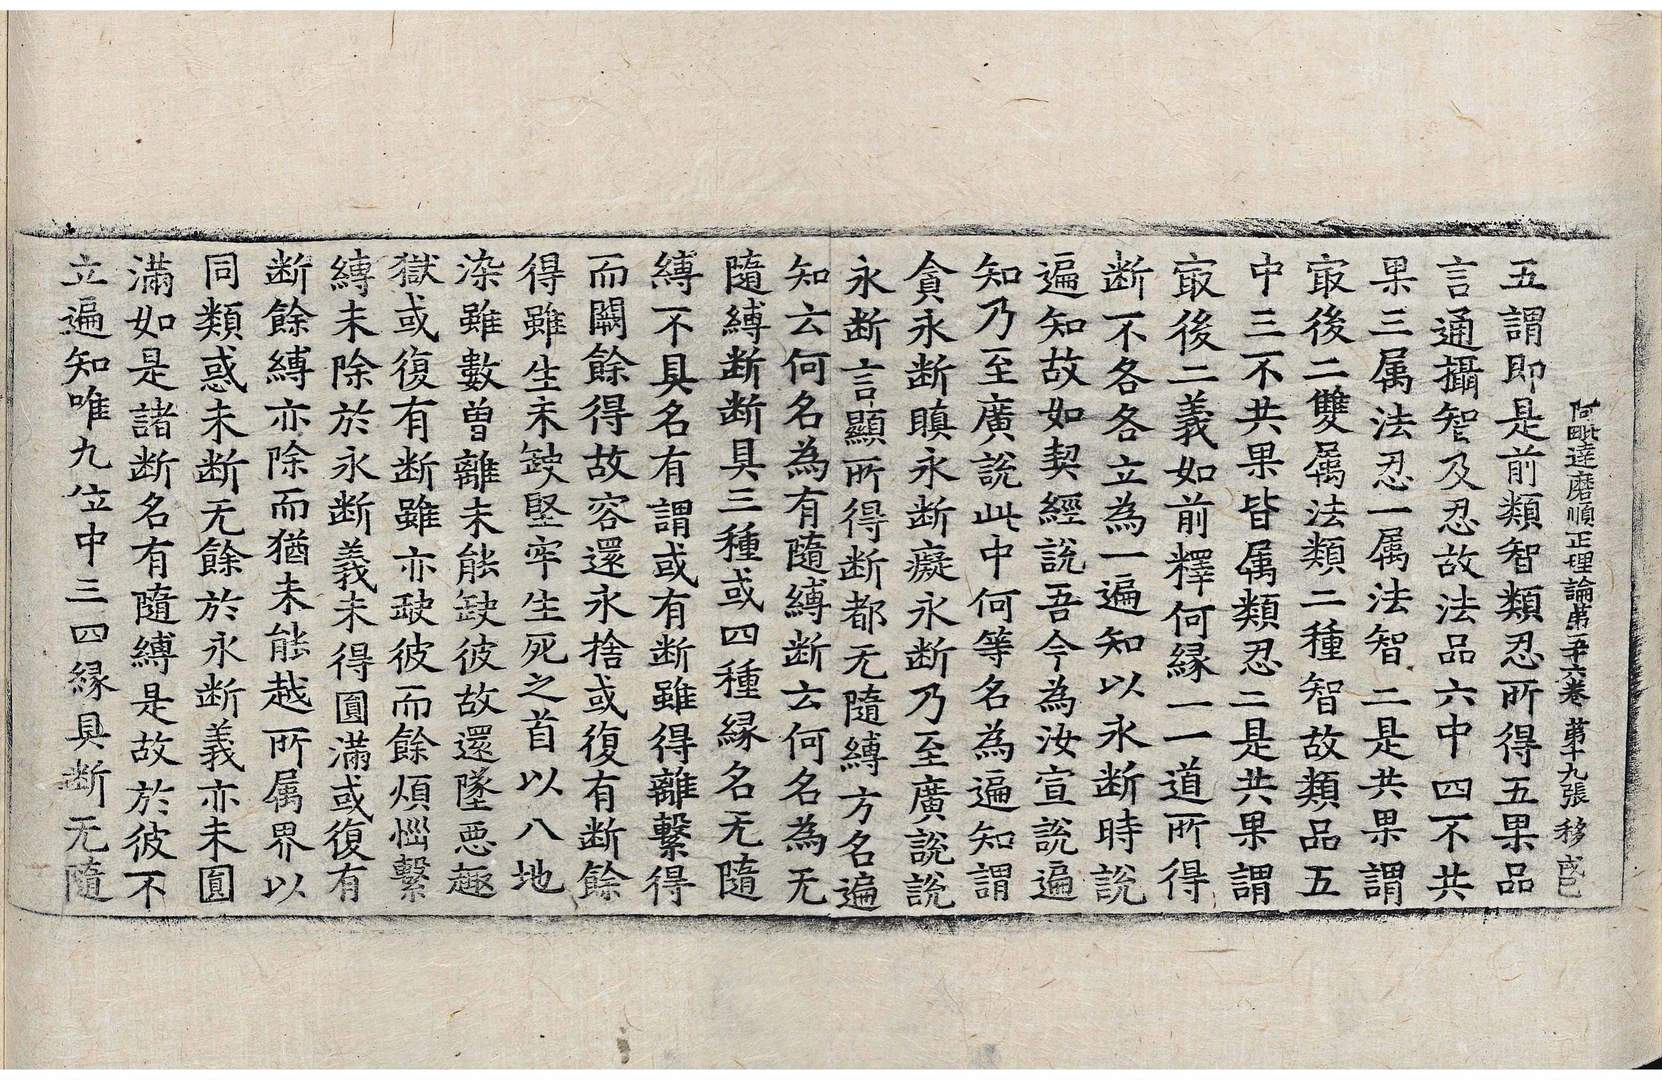 阿毗達磨順正理論第五十六卷 第十九張 移
五謂即是前類智類忍所得五果品
言通攝智及忍故法品六中四不共
果三属法忍一属法智二是共果謂
㝡後二雙属法類二種智故類品五
中三不共果皆属類忍二是共果謂
㝡後二義如前釋何縁一一道所得
断不各各立為一遍知以永断時說
遍知故如契經說吾今為汝宣說遍
知乃至廣說此中何等名為遍知謂
貪永断瞋永断癡永断乃至廣說說
永断言顯所得断都无隨縛方名遍
知云何名為有隨縛断云何名為无
隨縛断断具三種或四種縁名无隨
縛不具名有謂或有断雖得離繫得
而闕餘得故容還永捨或復有断餘
得雖生未缺堅牢生死之首以八地
染雖數曾離未能缺彼故還墜惡趣
獄或復有断雖亦缺彼而餘煩惱繫
縛未除於永断義未得圓滿或復有
断餘縛亦除而猶未能越所属界以
同類惑未断无餘於永断義亦未圓
滿如是諸断名有隨縛是故於彼不
立遍知唯九位中三四縁具断无隨